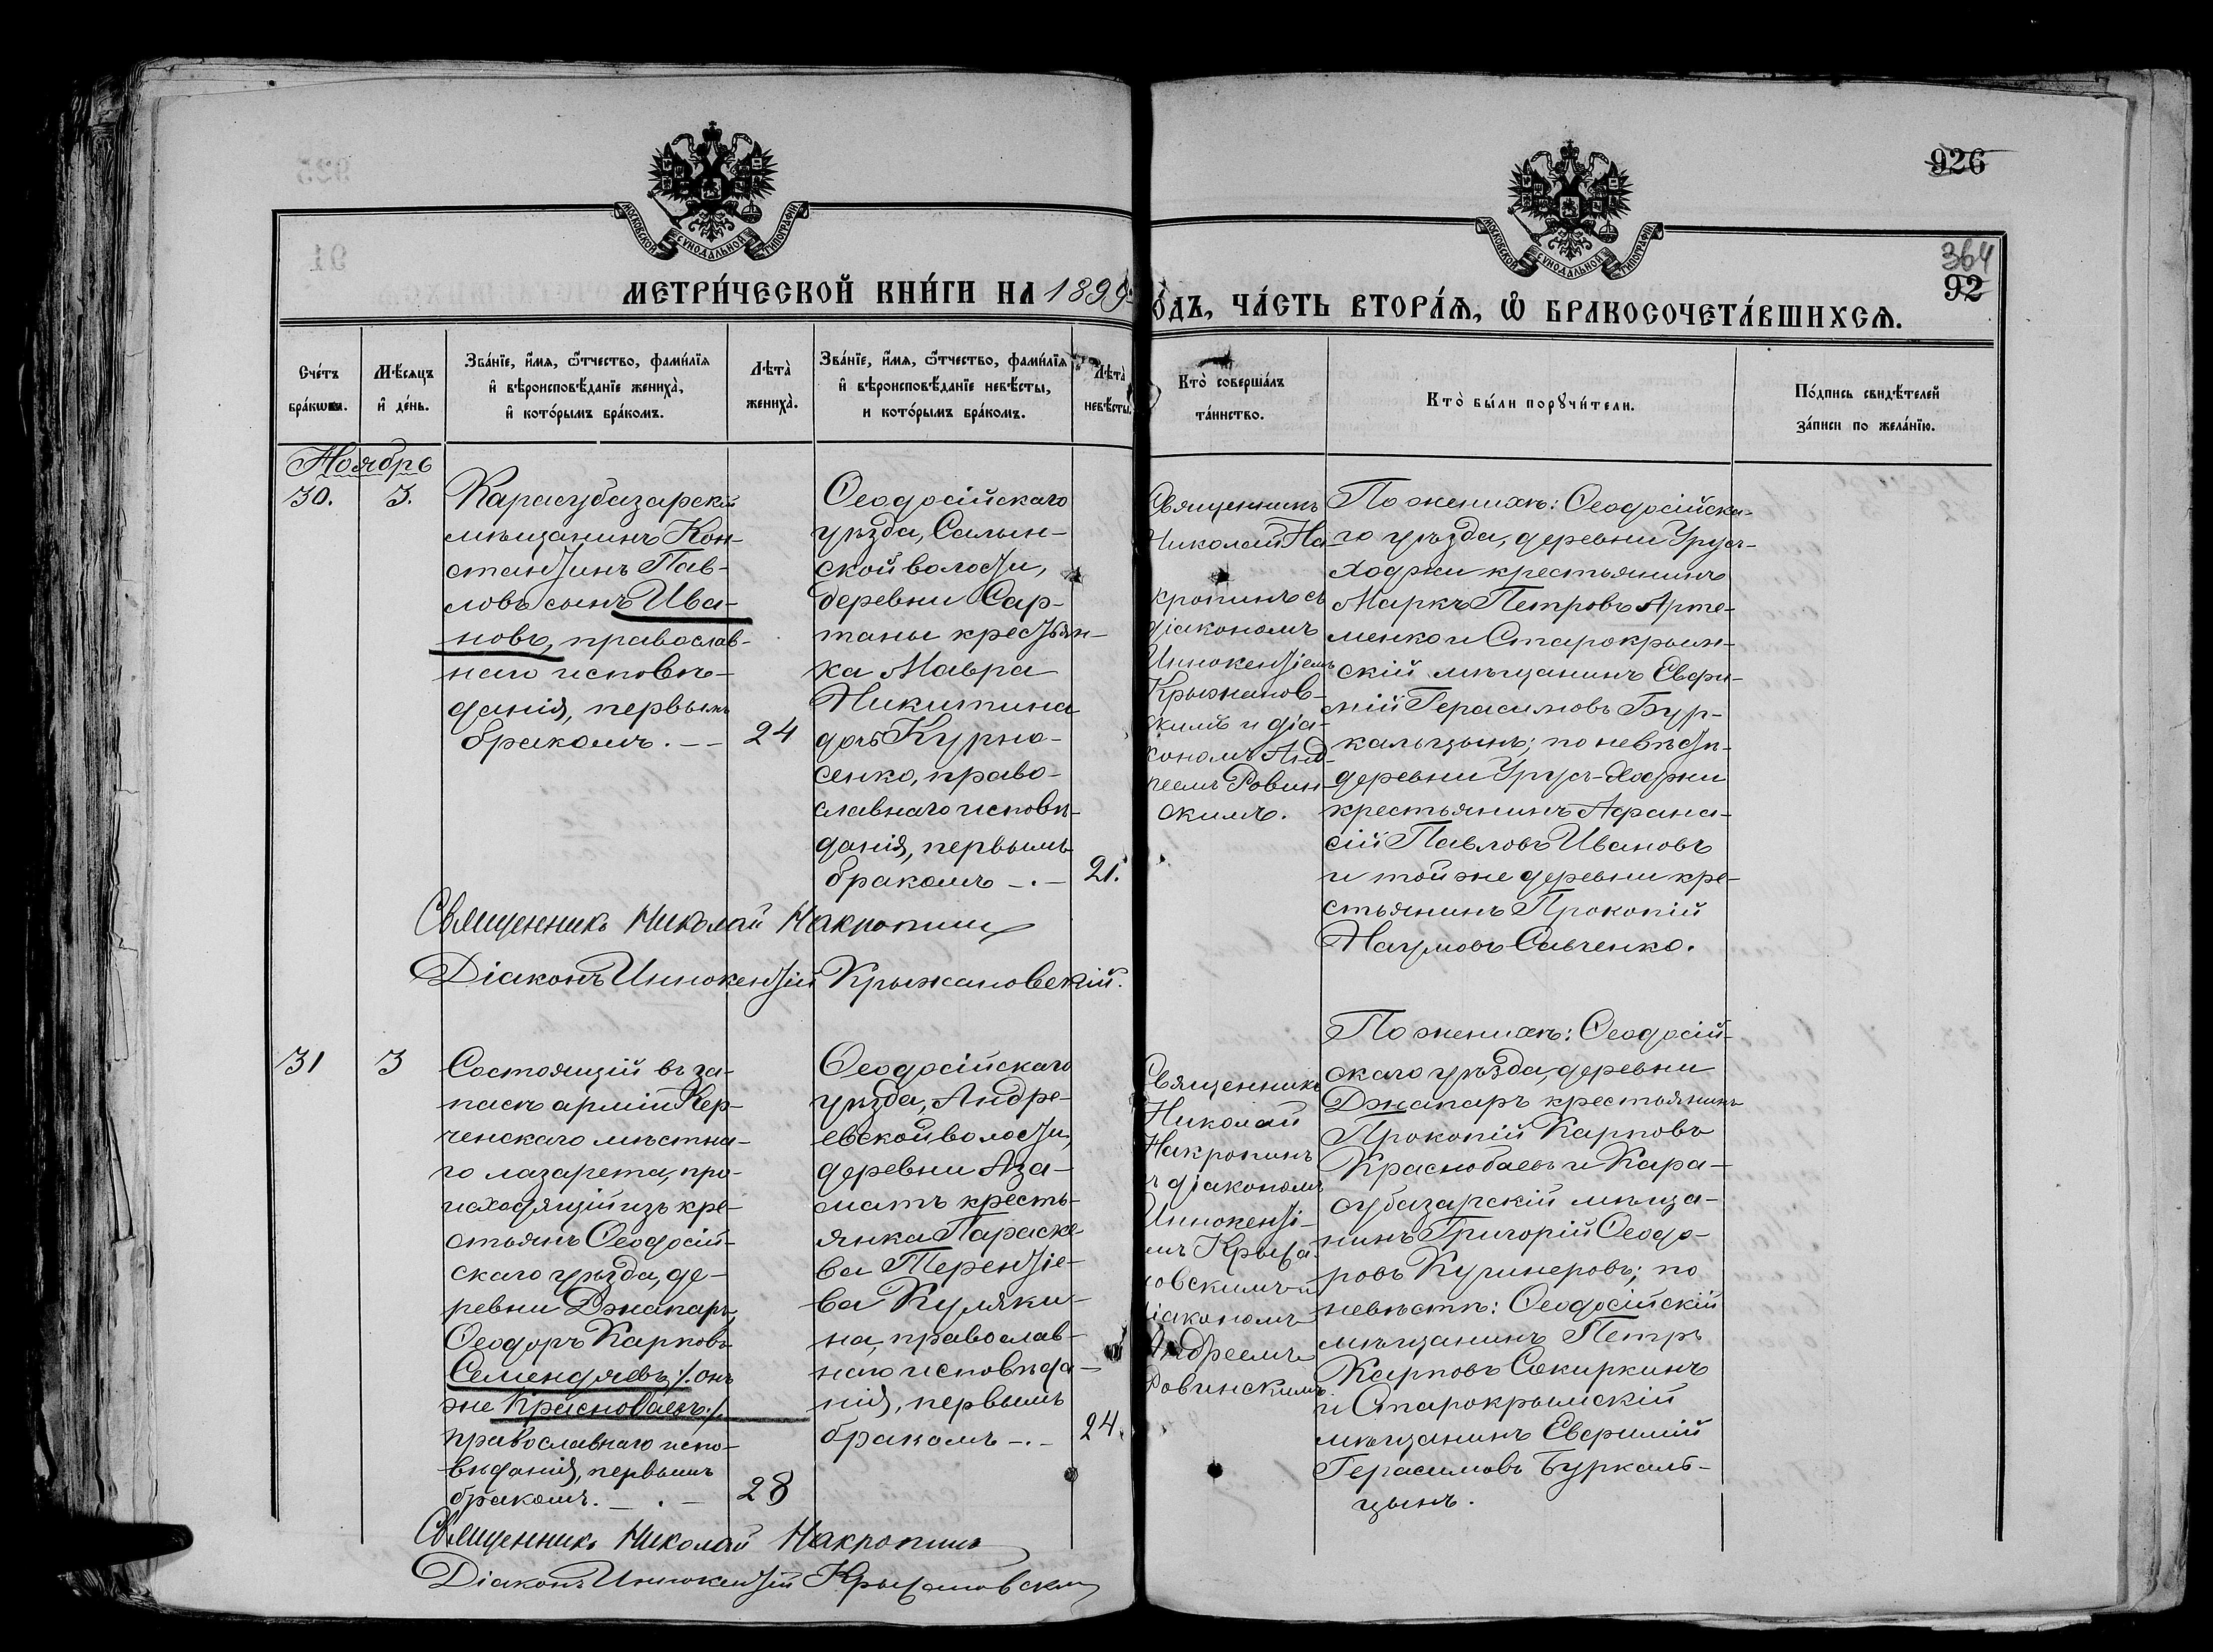 926
364
92
МОСКОВСКОЙ СѴНОДАЛЬНОЙ ТИПОГРАФІИ
МОСКОВСКОЙ СѴНОДАЛЬНОЙ ТИПОГРАФІИ
МЕТРИ́ЧЕСКОЙ КНИ́ГИ НА 1899
О́ДЪ, ЧА́СТЬ ВТОРА́Ѧ, Ѡ҆ БРАКОСОЧЕТА́ВШИХСѦ.
Сче́тъ
бра́кѡвъ.
Мѣ́сяцъ
и҆ де́нь.
Зва́нїе, и҆́мя, ѻ҆́тчество, фами́лїя
и҆ вѣроисповѣ́данїе жениха̀,
и҆ кото́рымъ бра́комъ.
Лѣта̀
жениха̀.
Зва́нїе, и҆́мя, ѻ҆́тчество, фами́лїя
и҆ вѣроисповѣ́данїе невѣ́сты,
и кото́рымъ бра́комъ.
Лѣта̀
невѣ́сты.
Кто̀ соверша́лъ
та́инство.
Кто̀ бы́ли порꙋчи́тели.
По́дпись свидѣ́телей
за́писи по жела́нїю.
Ноябрь
30.
3.
Карасубазарскій
мѣщанинъ Кон-
стантинъ Пав-
ловъ сынъ Ива-
новъ, православ-
наго исповѣ-
данія, первымъ
бракомъ. — —
24
Ѳеодосійскаго
уѣзда, Салын-
ской волости,
деревни Сар-
таны крестьян-
ка Мавра
Никитина
дочь Курно-
сенко, право-
славнаго исповѣ-
данія, первымъ
бракомъ —.—
21.
Священникъ
Николай На-
кропинъ съ
діакономъ
Иннокентіемъ
Крыжанов-
скимъ и діа-
кономъ Анд-
реемъ Ровин-
скимъ.
По женихѣ: Ѳеодосійска-
го уѣзда, деревни Урусъ-
Ходжи крестьянинъ
Маркъ Петровъ Арте-
менко и Старокрым-
скій мѣщанинъ Евфи-
мій Герасимовъ Бур-
кальцынъ; по невѣстѣ-
деревни Урусъ-Ходжи
крестьянинъ Афана-
сій Павловъ Ивановъ
и той же деревни кре-
стьянинъ Прокопій
Наумовъ Савченко.
Священникъ Николай Накропинъ
Діаконъ Иннокентій Крыжановскій.
31
3
Состоящій въ за-
пасѣ арміи Кер-
ченскаго мѣстна-
го лазарета, про-
исходящій изъ кре-
стьянъ Ѳеодосій-
скаго уѣзда, де-
ревни Джапаръ,
Ѳеодоръ Карповъ
Семендяевъ /. онъ
же Краснобаевъ ./
православнаго испо-
вѣданія, первымъ
бракомъ. — . —
28
Ѳеодосійскаго
уѣзда, Андре-
евской волости,
деревни Аза-
матъ кресть-
янка Параске-
ва Терентіе-
ва Куляки-
на, православ-
наго исповѣда-
нія, первымъ
бракомъ —.—
24.
Священникъ
Николай
Накропинъ
съ діакономъ
Иннокенті-
емъ Крыжа-
новскимъ и
діакономъ
Андреемъ
Ровинскимъ.
По женихѣ: Ѳеодосій-
скаго уѣзда, деревни
Джапаръ крестьянинъ
Прокопій Карповъ
Краснобаевъ и Кара-
субазарскій мѣща-
нинъ Григорій Ѳеодо-
ровъ Кушнеровъ; по
невѣстѣ: Ѳеодосійскій
мѣщанинъ Петръ
Карповъ Секиркинъ
и Старокрымскій
мѣщанинъ Евфимій
Герасимовъ Буркаль-
цынъ.
Священникъ Николай Накропинъ
Діаконъ Иннокентій Крыжановскій